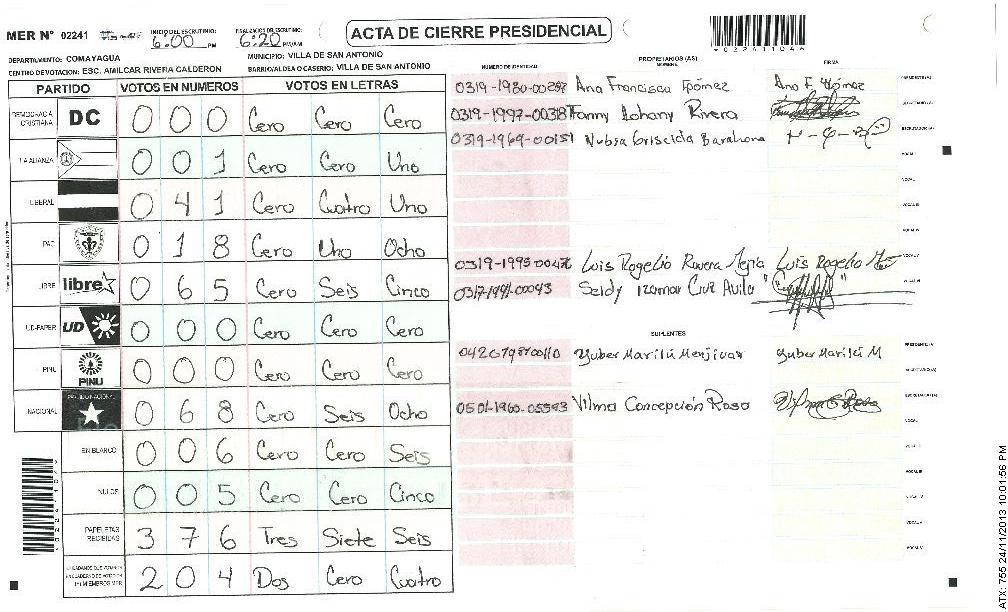 MER N° 02241
INICIO DEL ESCRUTINIO: 6:00 PM
FINALIZO ESCRUTINIO: 6:20 PM/AM
ACTA DE CIERRE PRESIDENCIAL
DEPARTAMENTO: COMAYAGUA
MUNICIPIO: VILLA DE SAN ANTONIO
CENTRO DE VOTACION: ESC. AMILCAR RIVERA CALDERON
BARRIO/ALDEA O CASERIO: VILLA DE SAN ANTONIO
PARTIDO VOTOS EN NUMEROS VOTOS EN LETRAS
DEMOCRACIA CRISTIANA DC 0 0 0 Cero Cero Cero
LA ALIANZA 0 0 1 Cero Cero Uno
LIBERAL 0 4 1 Cero Cuatro Uno
PAC 0 1 8 Cero Uno Ocho
LIBRE libre 0 6 5 Cero Seis Cinco
UD-FAPER UD 0 0 0 Cero Cero Cero
PINU PINU 0 0 0 Cero Cero Cero
NACIONAL PARTIDO NACIONAL 0 6 8 Cero Seis Ocho
EN BLANCO 0 0 6 Cero Cero Seis
NULOS 0 0 5 Cero Cero Cinco
PAPELETAS RECIBIDAS 3 7 6 Tres Siete Seis
CIUDADANOS QUE VOTARON EN CUADERNO DE VOTACION 2 0 4 Dos Cero Cuatro
NUMERO DE IDENTIDAD
PROPIETARIOS (AS)
NOMBRE
FIRMA
Ana Francisca Gómez Ana F. Gómez PRESIDENTE(A)
0319-1997-00318 Fanny Johany Rivera SECRETARIO(A)
0319-1969-00151 Nubia Griscida Barahona ESCRUTADOR(A)
VOCAL I
VOCAL
VOCAL III
VOCAL IV
Luis Rogelio Rivera Mejia Luis Rogelio VOCAL V
Seidy Izamar Cruz Avila VOCAL VI
SUPLENTES
Yuber Marilú Menjivar Yuber Marilú M PRESIDENTE(A)
SECRETARIO(A)
Vilma Concepción Rosa ESCRUTADOR(A)
VOCAL
VOCAL II
VOCAL III
VOCAL IV
VOCAL V
VOCAL VI
ATX: 755 24/11/2013 10:01:56 PM